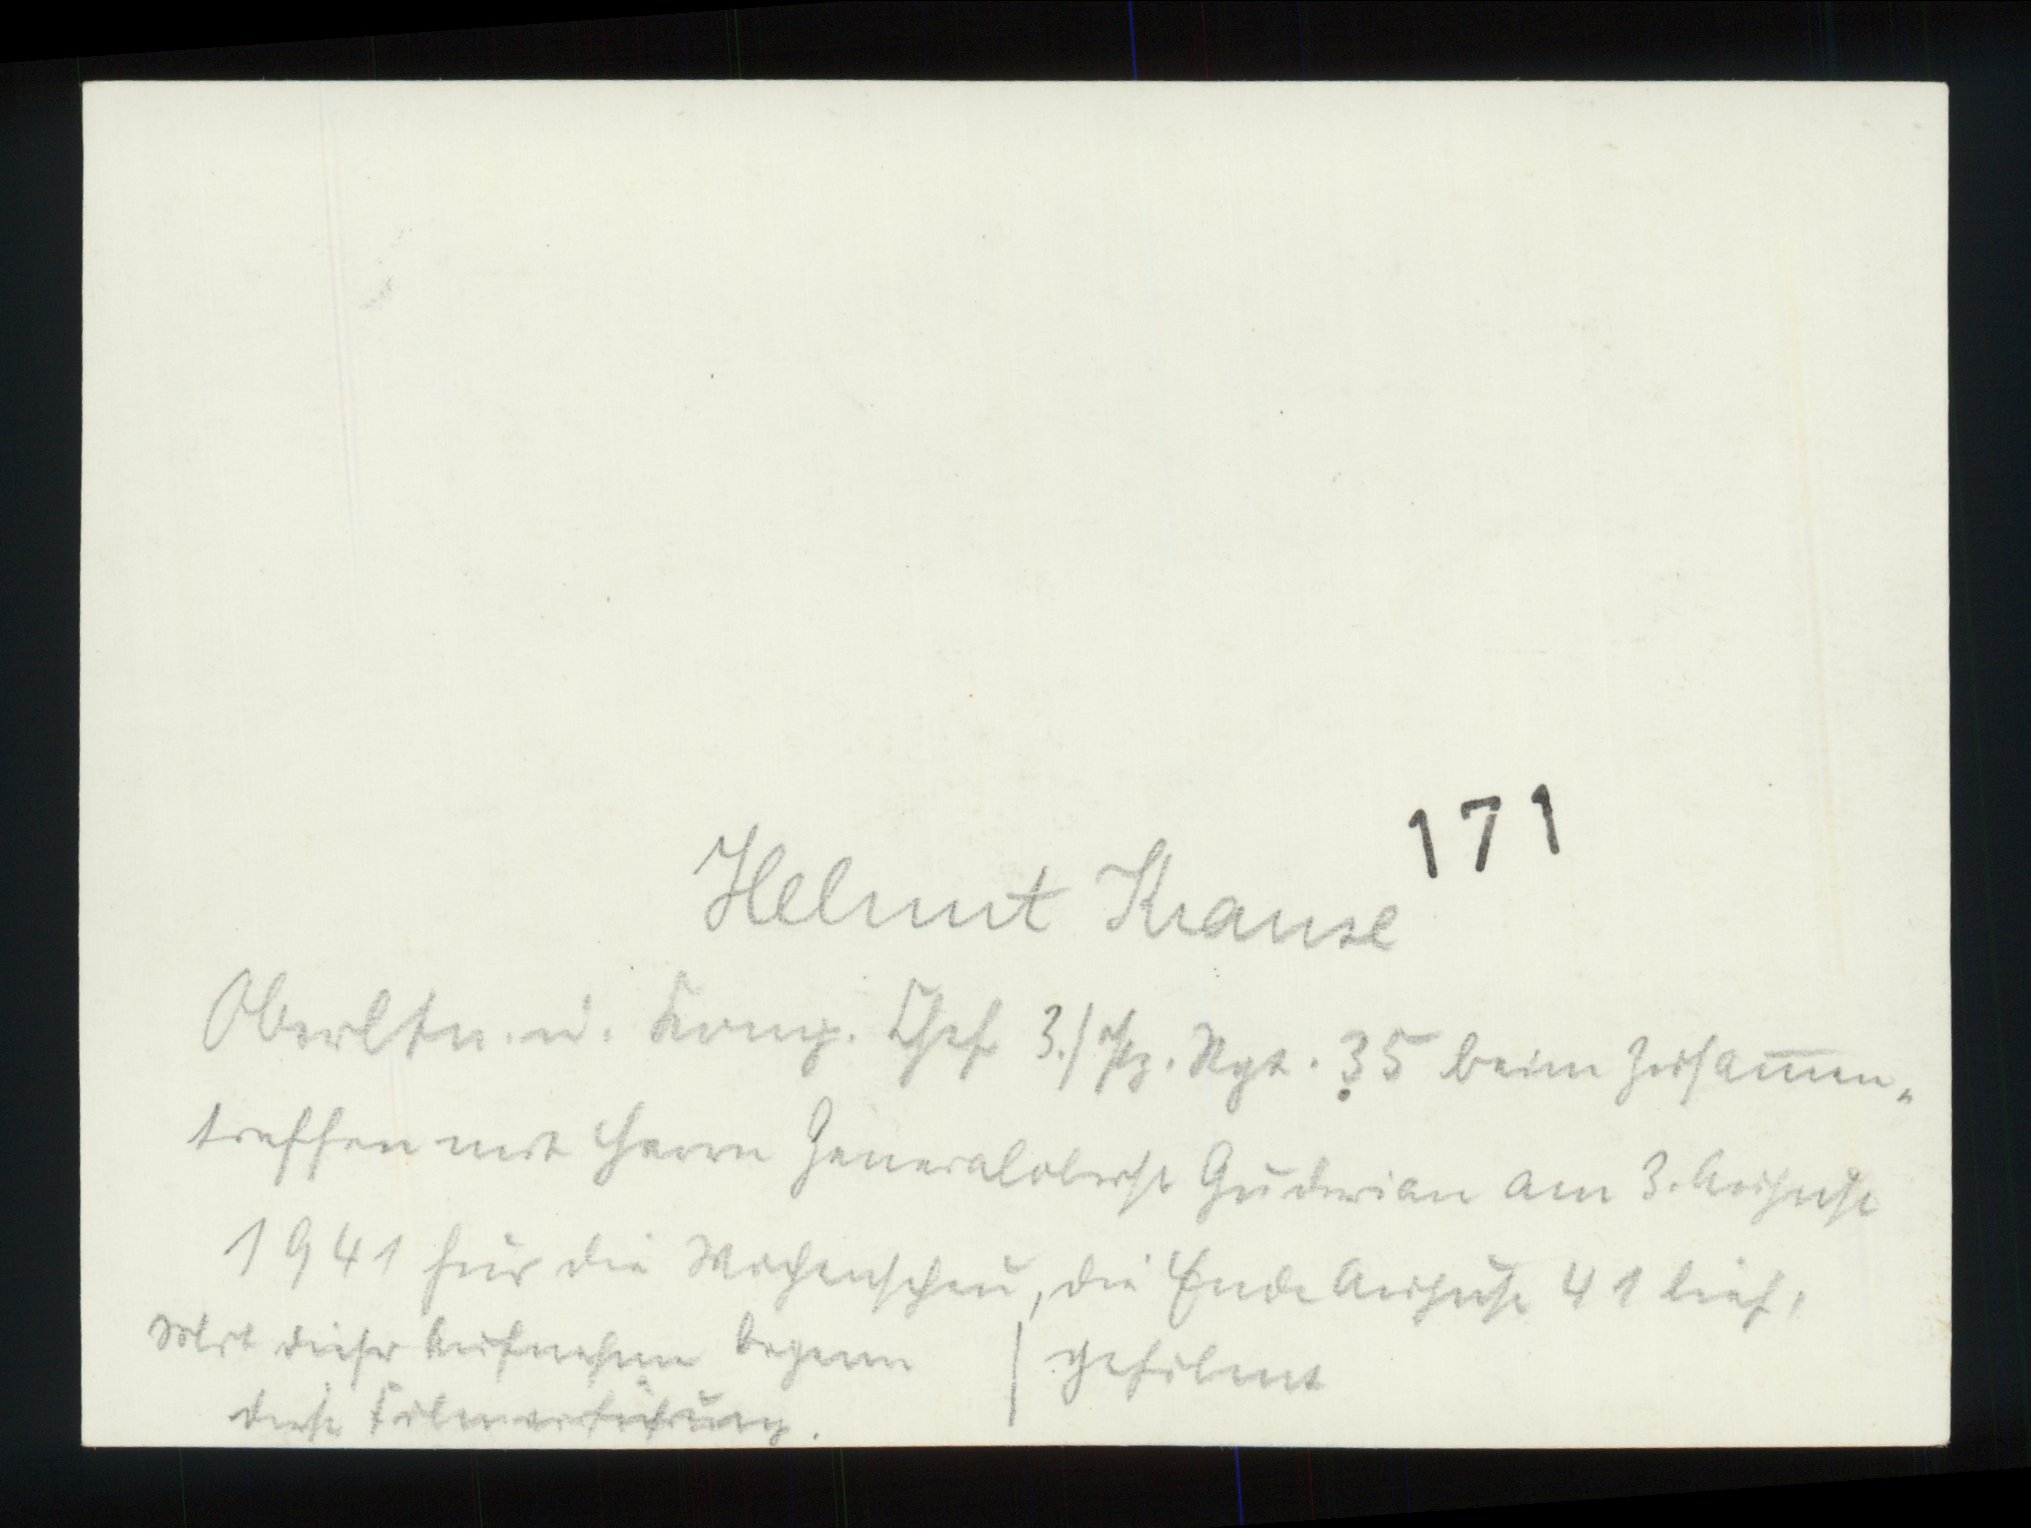 171
Helmut Krause
Oberltn. u. Komp. Chef 3./Pz. Rgt. 35 beim Zusam̅en„
treffen mit Herrn Generaloberst Guderian am 3. August
1941 für die Wochenschau, die Ende August 41 lief,
Mit dieser Aufnahme begann | gefilmt
diese Filmvorführung.